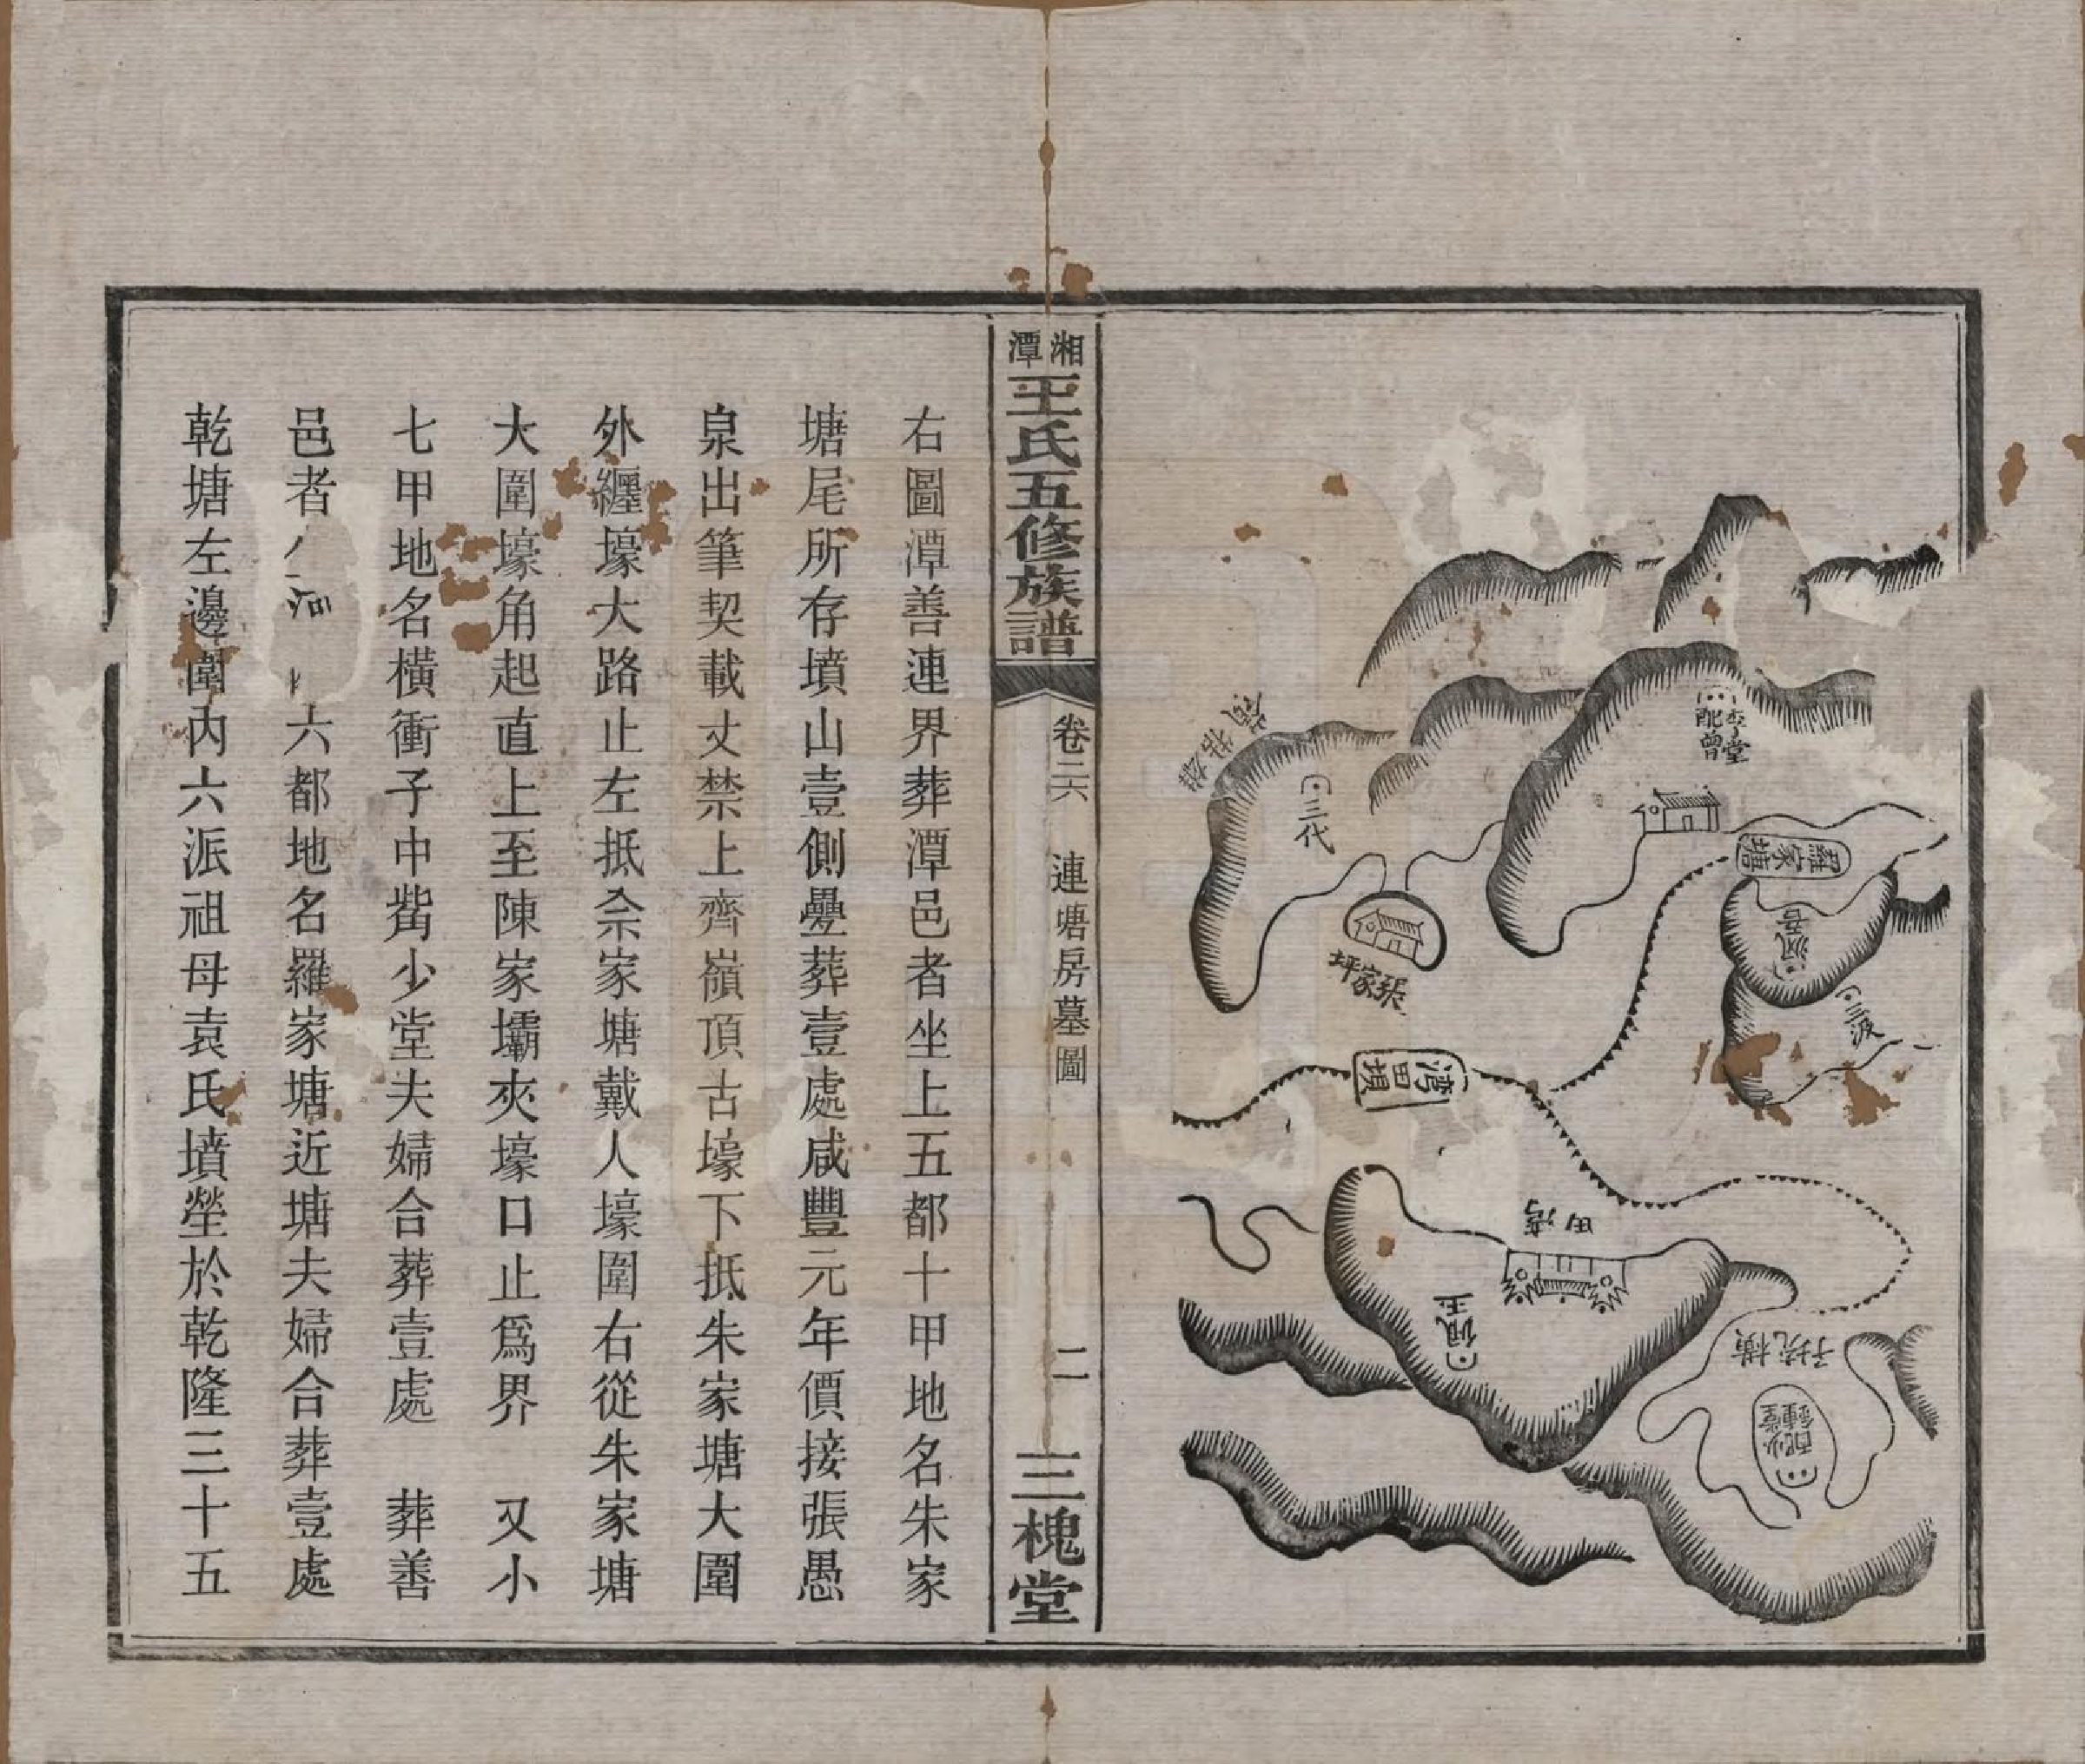 李堂
配曾
羅家塘
三代
張家坪
灣田垻
田灣
橫坑子
少堂
配鍾
湘潭王氏五修族譜
卷二六
連塘房墓圖
二
三槐堂
右圖潭善連界葬潭邑者坐上五都十甲地名朱家
塘尾所存墳山壹側疊葬壹處咸豐元年價接張愚
泉出筆契載丈禁上齊嶺頂古壕下抵朱家塘大圍
外纏壕大路止左抵佘家塘戴人壕圍右從朱家塘
大圍壕角起直上至陳家壩夾壕口止爲界　又小
七甲地名橫衝子中嘴少堂夫婦合葬壹處　葬善
邑者六都地名羅家塘近塘夫婦合葬壹處
乾塘左邊圍內六派祖母袁氏墳塋於乾隆三十五